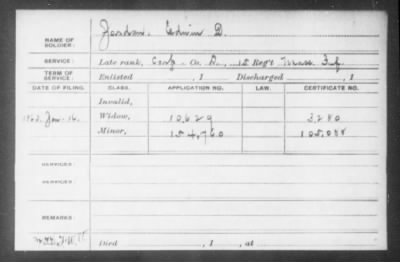 NAME OF SOLDIER: Edwin D.
SERVICE: Late rank, Corp. Co. D., 15 Reg't Mass Inf
TERM OF SERVICE: Enlisted , 1 Discharged , 1
DATE OF FILING. CLASS. APPLICATION NO. LAW. CERTIFICATE NO.
Invalid,
1863. Jan. 16. Widow, 10629 3,280
Minor, 154,760
SERVICES:
SERVICES:
REMARKS:
Died , 1 , at